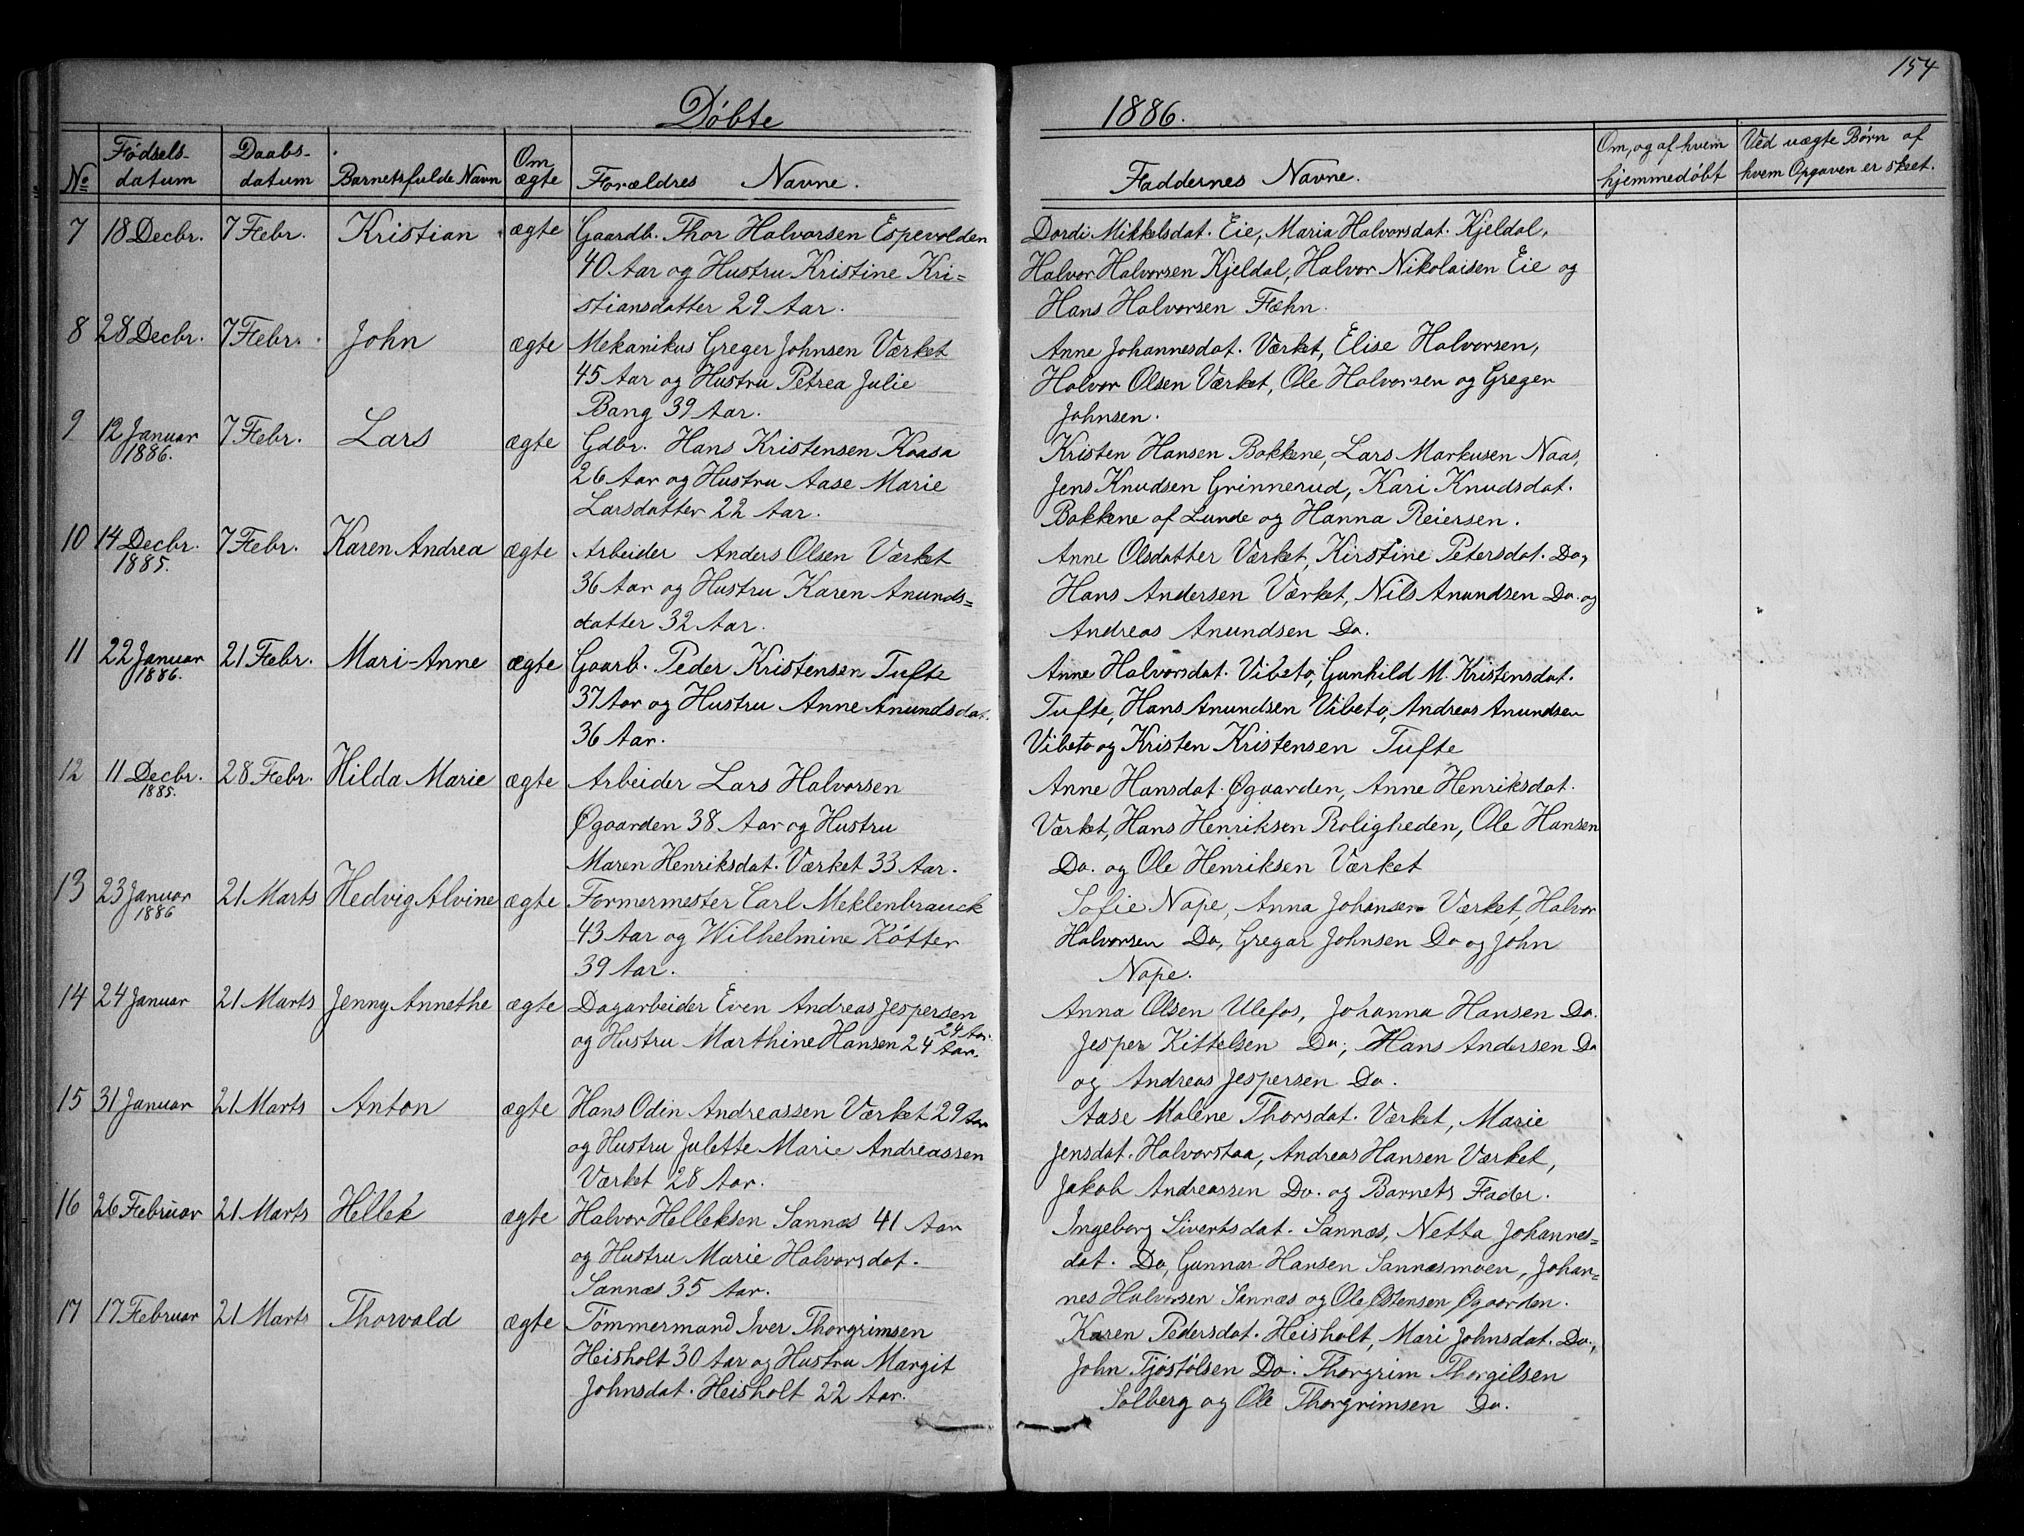 154
Døbte 1886.
No Fødsels-datum Daabs-datum Barnets fulde Navn Om ægte Forældres Navne. Faddernes Navne. Om, og af hvem hjemmedøbt Ved uægte Børn af hvem Opgaven er skeet.
7 18 Decbr. 7 Febr. Kristian ægte Gaardb. Thor Halvorsen Espevolden
40 Aar og Hustru Kristine Kri=
stiansdatter 29 Aar.
Dordi Mikkelsdat. Eie, Maria Halvorsdat. Kjeldal,
Halvor Halvorsen Kjeldal, Halvor Nikolaisen Eie og
Hans Halvorsen Fæhn.
8 28 Decbr. 7 Febr. John ægte Mekanikus Greger Johnsen Værket
45 Aar og Hustru Petrea Julie
Bang 39 Aar.
Anne Johannesdat. Værket, Elise Halvorsen,
Halvor Olsen Værket, Ole Halvorsen og Greger
Johnsen.
9 12 Januar 1886. 7 Febr. Lars ægte Gdbr. Hans Kristensen Kaasa
26 Aar og Hustru Aase Marie
Larsdatter 22 Aar.
Kristen Hansen Bakkene, Lars Markusen Naas,
Jens Knudsen Grinnerud, Kari Knudsdat.
Bakkene af Lunde og Hanna Reiersen.
10 14 Decbr. 1885. 7 Febr. Karen Andrea ægte Arbeider Anders Olsen Værket
36 Aar og Hustru Karen Anunds=
datter 32 Aar.
Anne Olsdatter Værket, Kirstine Petersdat. Do,
Hans Andersen Værket, Nils Anundsen Do. og
Andreas Anundsen Do.
11 22 Januar 1886. 21 Febr. Mari-Anne ægte Gaarb. Peder Kristensen Tufte
37 Aar og Hustru Anne Anundsdat.
36 Aar.
Anne Halvorsdat. Vibeto, Gunhild M. Kristensdat.
Tufte, Hans Anundsen Vibeto, Andreas Anundsen
Vibeto og Kristen Kristensen Tufte
12 11 Decbr. 1885. 28 Febr. Hilda Marie ægte Arbeider Lars Halvorsen
Øgaarden 38 Aar og Hustru
Maren Henriksdat. Værket 33 Aar.
Anne Hansdat. Øgaarden, Anne Henriksdat.
Værket, Hans Henriksen Roligheden, Ole Hansen
Do. og Ole Henriksen Værket
13 23 Januar 1886 21 Marts Hedvig Alvine ægte Formermester Carl Meklenbrauck
43 Aar og Wilhelmine Køtter
39 Aar.
Sofie Nape, Anna Johansen Værket, Halvor
Halvorsen Do, Gregar Johnsen Do og John
Nape.
14 24 Januar 21 Marts Jenny Annethe ægte Dagarbeider Even Andreas Jespersen
24 Aar.
og Hustru Marthine Hansen 24 Aar.
Anna Olsen Ulefos, Johanna Hansen Do.
Jesper Kittelsen Do, Hans Andersen Do
og Andreas Jespersen Do.
15 31 Januar 21 Marts Anton ægte Hans Odin Andreassen Værket 29 Aar
og Hustru Julette Marie Andreassen
Værket 28 Aar.
Aase Malene Thorsdat. Værket, Marie
Jensdat. Halvorstaa, Andreas Hansen Værket,
Jakob Andreassen Do. og Barnets Fader.
16 26 Februar 21 Marts Hellek ægte Halvor Helleksen Sannæs 41 Aar
og Hustru Marie Halvorsdat.
Sannæs 35 Aar.
Ingeborg Sivertsdat. Sannæs, Netta Johannes=
dat. Do, Gunnar Hansen Sannæsmoen, Johan=
nes Halvorsen Sannæs og Ole Østensen Øgaarden.
17 17 Februar 21 Marts Thorvald ægte Tømmermand Iver Thorgrimsen
Heisholt 30 Aar og Hustru Margit
Johnsdat. Heisholt 22 Aar.
Karen Pedersdat. Heisholt, Mari Johnsdat. Do.,
John Tjøstølsen Do. Thorgrim Thorgilsen
Solberg og Ole Thorgrimsen Do.